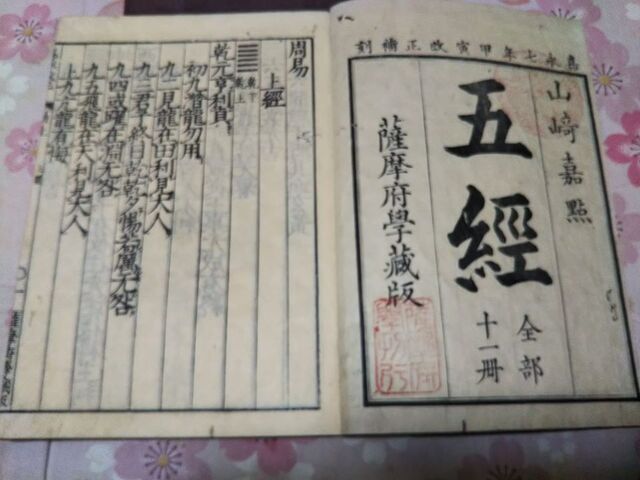 嘉永七年甲寅改正補刻
山崎嘉點
五經
全部
十一冊
薩摩府學藏版
周易
上經
乾下
乾上
乾元亨利貞
初九潛龍勿用
九二見龍在田利見大人
九三君子終日乾乾夕惕若厲无咎
九四或躍在淵无咎
九五飛龍在天利見大人
上九亢龍有悔